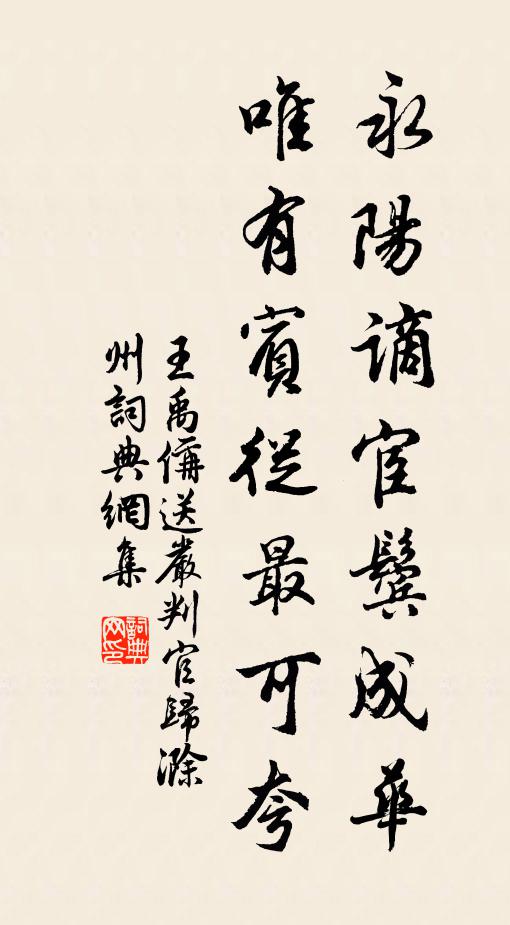 永陽謫宦鬢成華
唯有賓從最可夸
王禹偁送嚴判官歸滁
州詞典網集
詞典網印